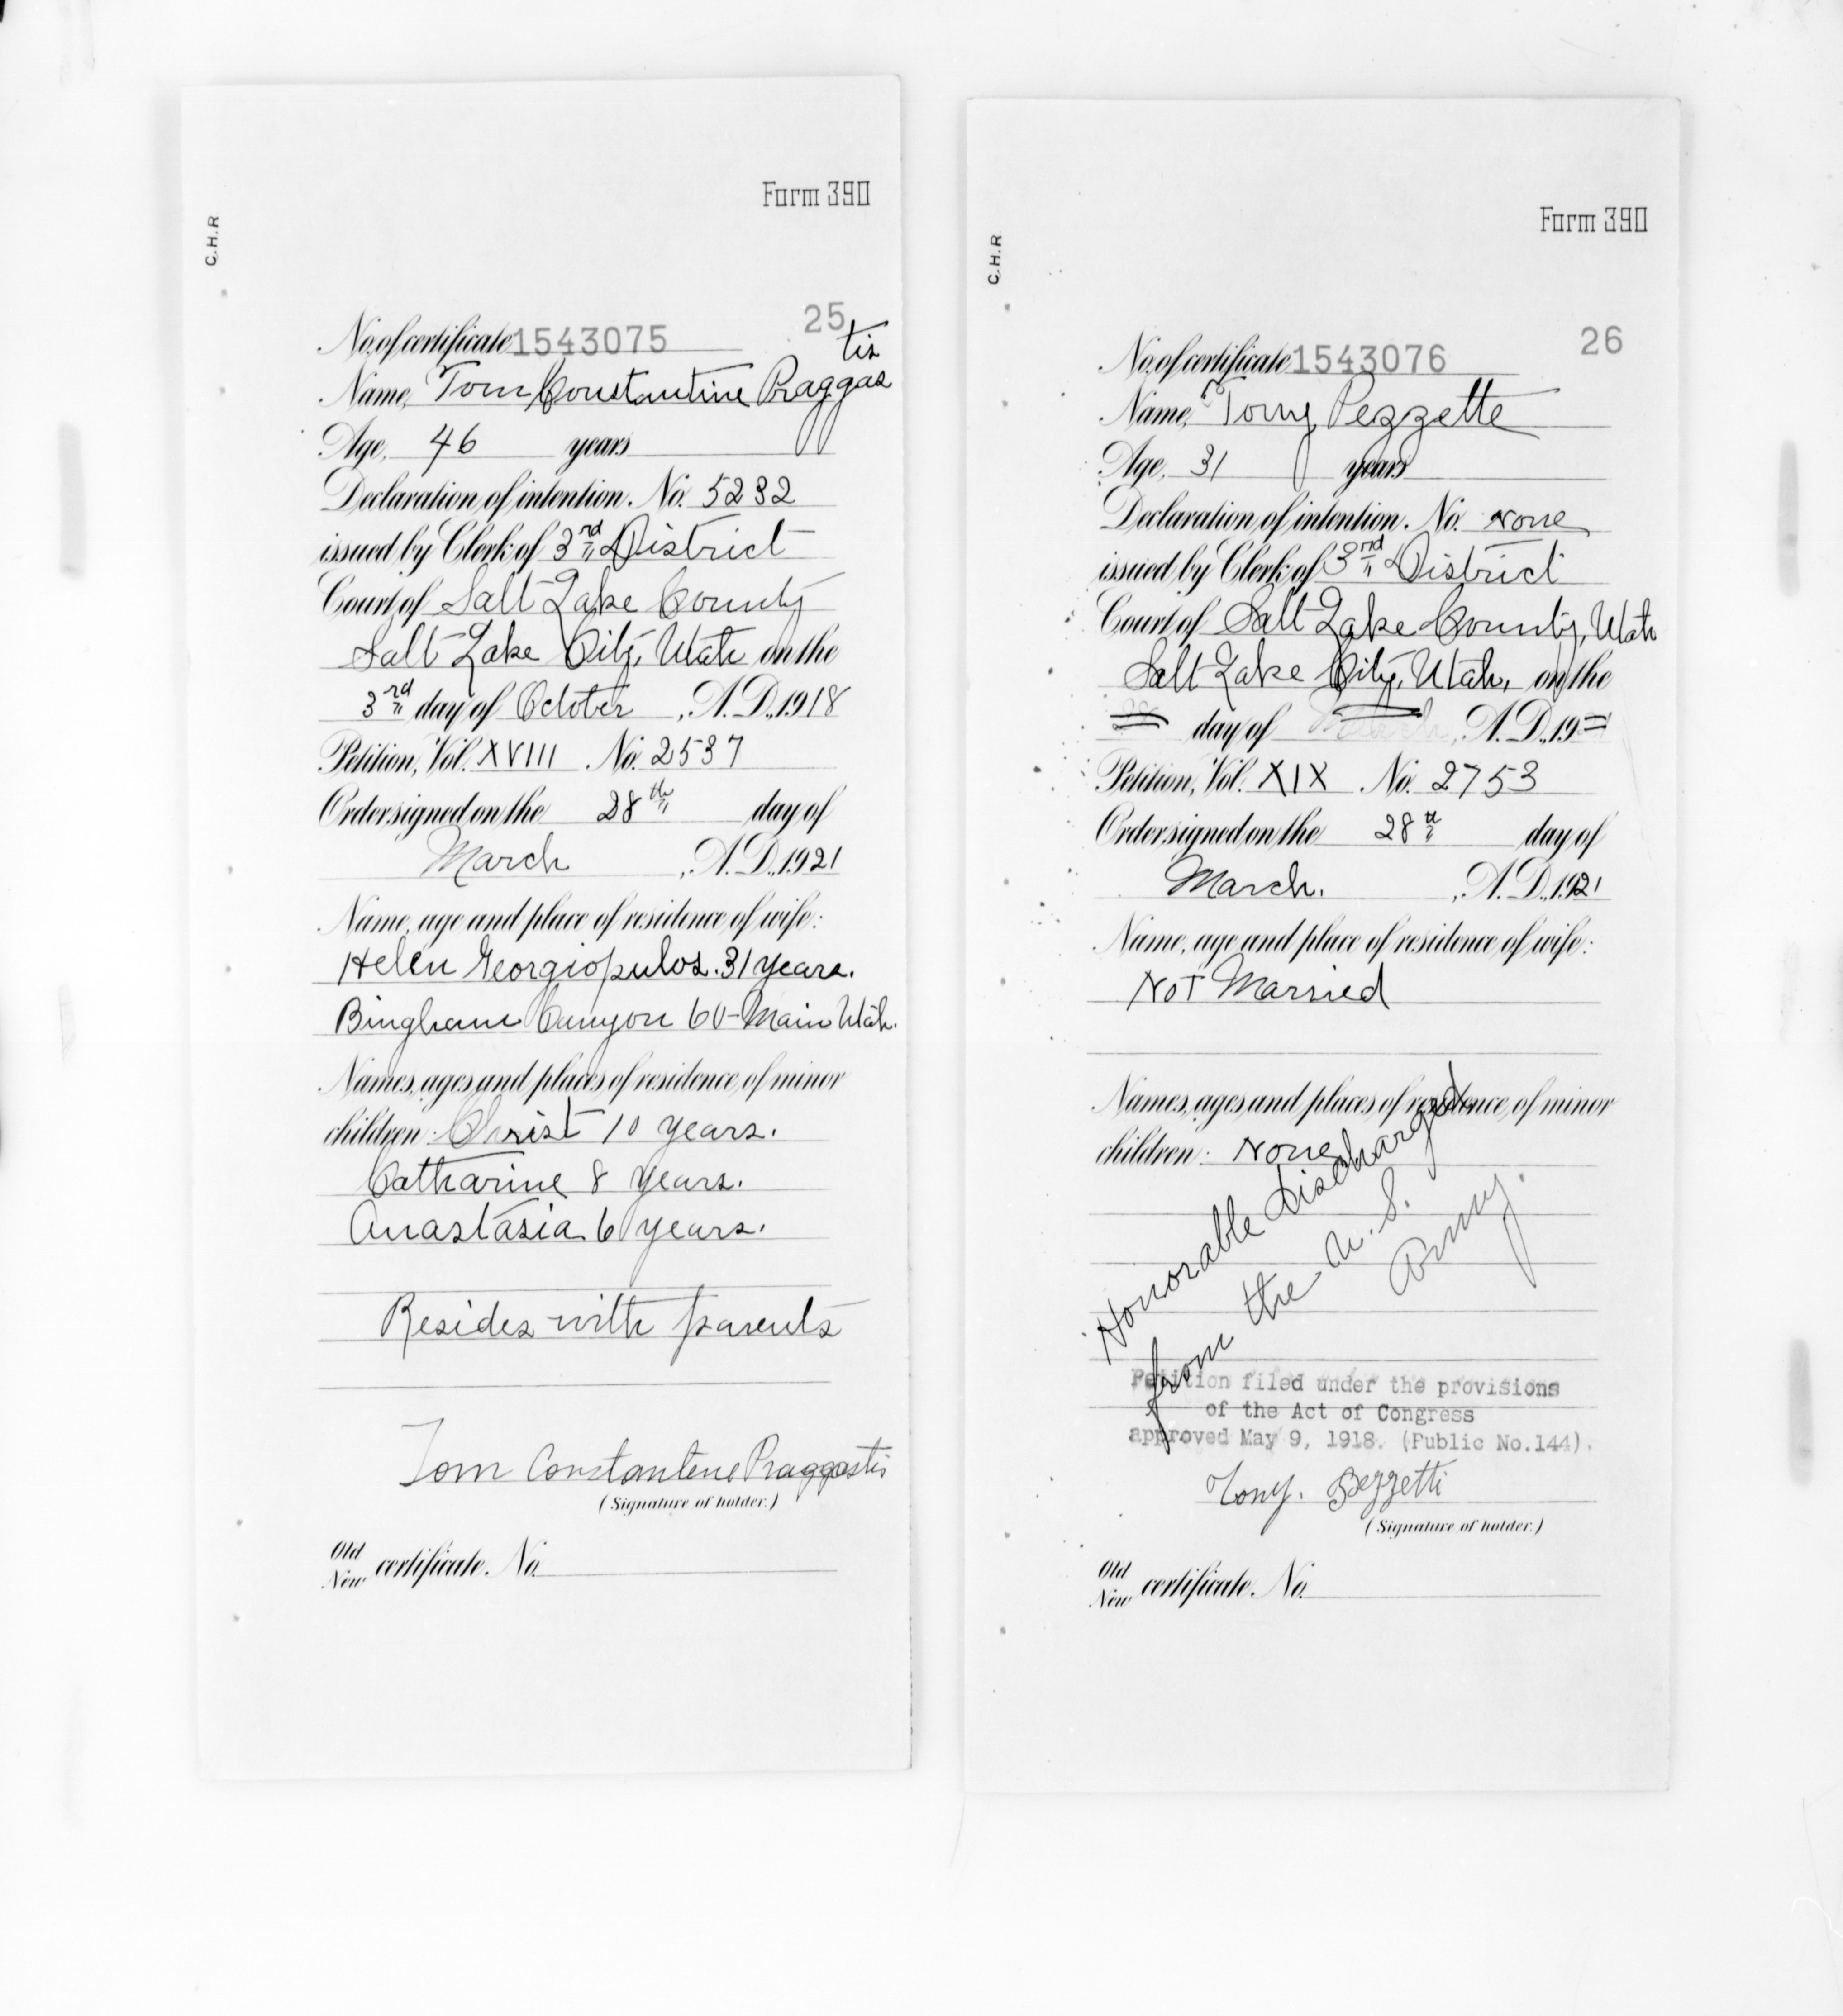 Form 390
C.H.R
25
No. of certificate 1543075
tis
Name, Tom Constantine Praggas
Age, 46 years
Declaration of intention. No. 5232
issued by Clerk of 3rd District
Court of Salt Lake County
Salt Lake City, Utah on the
3rd day of October, A.D., 1918
Petition, Vol. XVIII No. 2537
Order signed on the 28th day of
March, A.D., 1921
Name, age and place of residence of wife:
Helen Georgiopulos. 31 years.
Bingham Canyon 60-Main Utah.
Names, ages and places of residence of minor
children: Christ 10 years.
Catharine 8 years.
Anastasia 6 years.
Resides with parents
Tom Constantine Praggastis
(Signature of holder.)
Old
New certificate. No.
Form 390
C.H.R
26
No. of certificate 1543076
Name, Tony Pezzette
Age, 31 years
Declaration of intention. No. None
issued by Clerk of 3rd District
Court of Salt Lake County, Utah
Salt Lake City, Utah, on the
day of , A.D., 19
Petition, Vol. XIX No. 2753
Order signed on the 28th day of
March. , A.D., 1921
Name, age and place of residence of wife:
Not Married
Names, ages and places of residence of minor
children: None
Honorable Discharged
from the U.S.
Army.
Petition filed under the provisions
of the Act of Congress
approved May 9, 1918. (Public No.144).
Tony. Pezzetti
(Signature of holder.)
Old
New certificate. No.